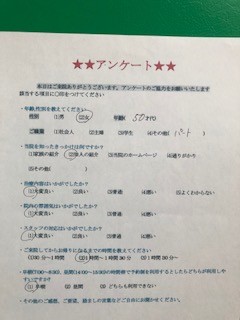 ★★アンケート★★
本日はご来院ありがとうございます。アンケートのご協力をお願いいたします
該当する項目に○印をつけてください
・年齢,性別を教えてください
性別 (1)男 (2)女 年齢( 50才代)
ご職業 (1)社会人 (2)主婦 (3)学生 (4)その他( パート )
・当院を知ったきっかけは何ですか？
(1)家族の紹介 (2)知人の紹介 (3)当院のホームページ (4)通りがかり
(5)その他( )
・治療内容はいかがでしたか？
(1)大変良い (2)良い (3)普通 (4)悪い (5)よくわからない
・院内の雰囲気はいかがでしたか？
(1)大変良い (2)良い (3)普通 (4)悪い
・スタッフの対応はいかがでしたか？
(1)大変良い (2)良い (3)普通 (4)悪い
・ご来院してからお帰りになるまでの時間を教えてください
(1)30分～1時間 (2)1時間～1時間30分 (3)1時間30分～
すいですか？
(1)早朝 (2)昼間 (3)どちらも利用できない
・その他のご感想、ご要望、励ましの言葉などご自由にお書きください。